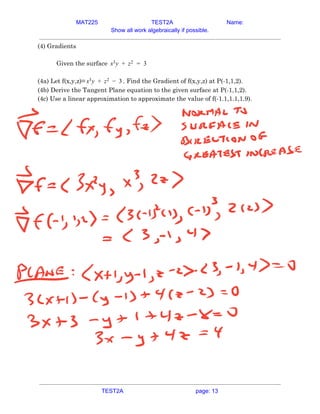 MAT225 TEST2A Name:
Show all work algebraically if possible.
(4) Gradients
Given the surface x³y + z² = 3
(4a) Let f(x,y,z)= x³y + z² − 3 . Find the Gradient of f(x,y,z) at P(-1,1,2).
(4b) Derive the Tangent Plane equation to the given surface at P(-1,1,2).
(4c) Use a linear approximation to approximate the value of f(-1.1,1.1,1.9).
∇f = < fx, fy, fz >
NORMAL TO
SURFACE IN
DIRECTION OF
GREATEST INCREASE
∇f = < 3x²y, x³, 2z >
∇f(-1,1,2) = < 3(-1)²(1), (-1)³, 2(2) >
= < 3, -1, 4 >
PLANE: < x+1, y-1, z-2 > · < 3, -1, 4 > = 0
3(x+1) - (y-1) + 4(z-2) = 0
3x + 3 - y + 1 + 4z - 8 = 0
3x - y + 4z = 4
TEST2A page: 13